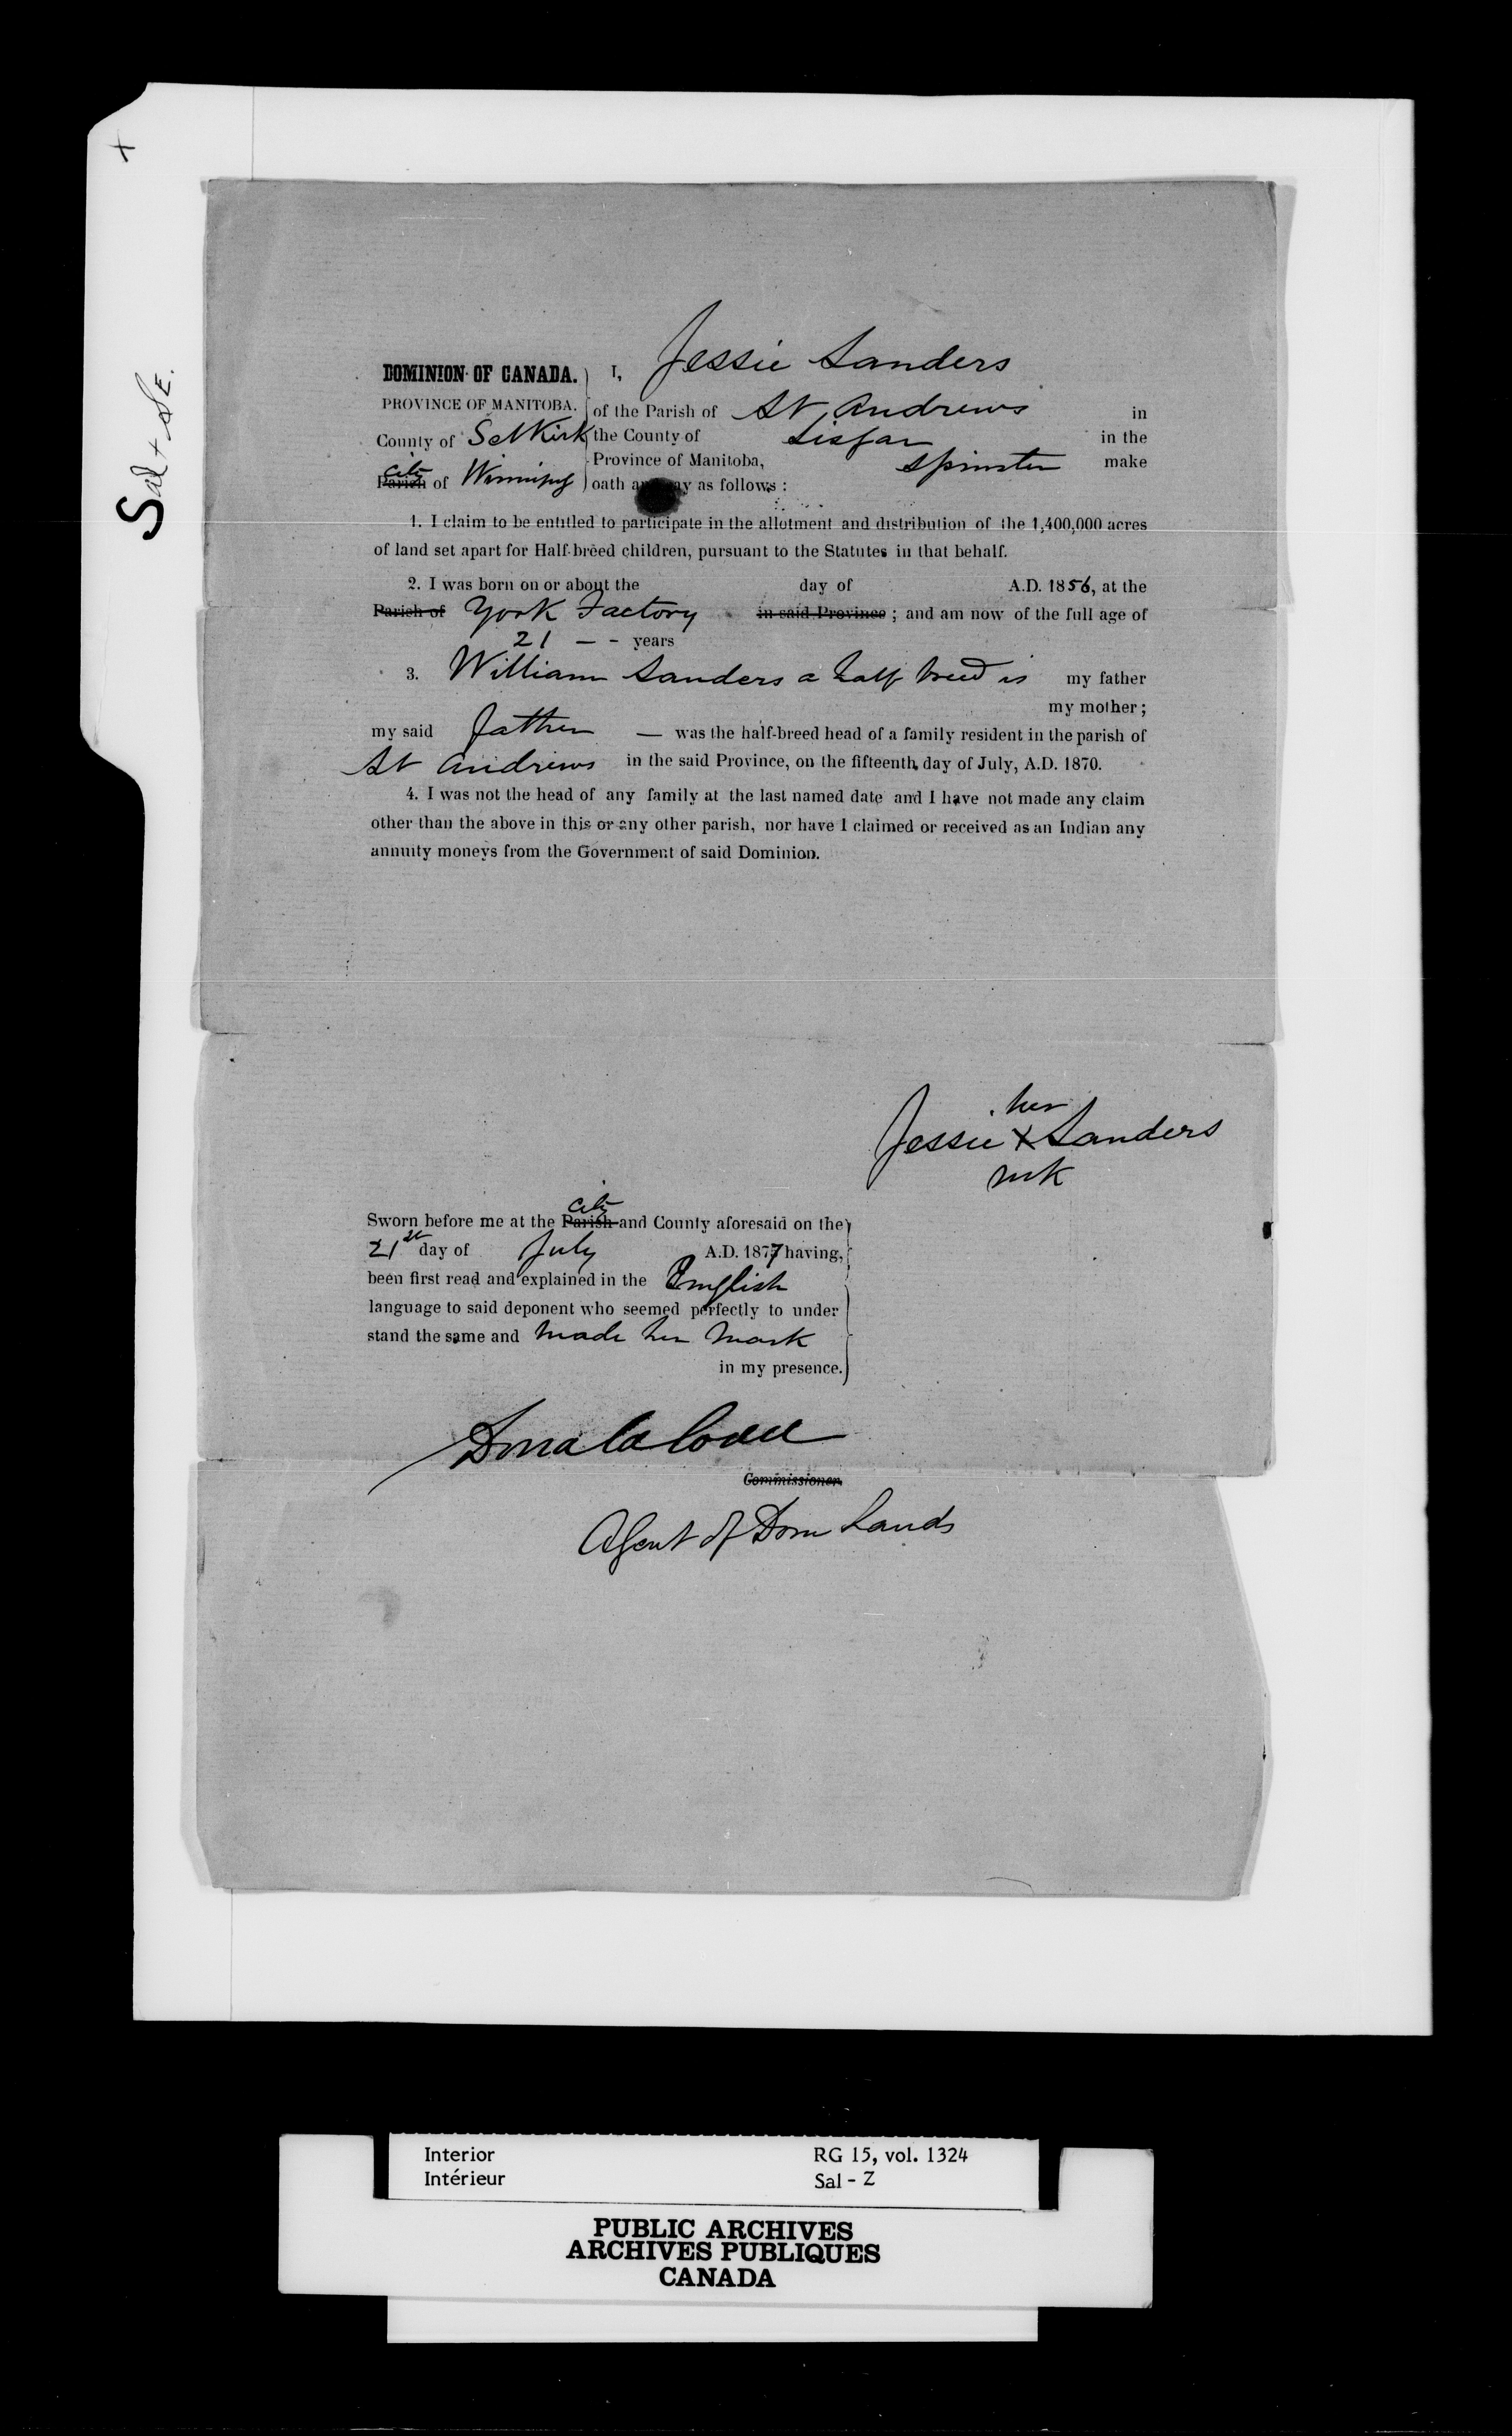 x
Sal + SE.
I, Jessie Sanders
DOMINION OF CANADA.
PROVINCE OF MANITOBA. of the Parish of St Andrews in
County of Selkirk the County of Lisgar in the
Province of Manitoba, spinster make
city
Parish of Winnipeg oath as follows :
1. I claim to be entitled to participate in the allotment and distribution of the 1,400,000 acres
of land set apart for Half-breed children, pursuant to the Statutes in that behalf.
2. I was born on or about the day of A.D. 1856, at the
Parish of York Factory in said Province ; and am now of the full age of
21 — - years
3. William Sanders a half breed is my father
my mother ;
my said father — was the half-breed head of a family resident in the parish of
St Andrews in the said Province, on the fifteenth day of July, A.D. 1870.
4. I was not the head of any family at the last named date and I have not made any claim
other than the above in this or any other parish, nor have I claimed or received as an Indian any
annuity moneys from the Government of said Dominion.
her
Jessie X Sanders
mk
city
Sworn before me at the Parish and County aforesaid on the
21st day of July A.D. 1877 having,
been first read and explained in the English
language to said deponent who seemed perfectly to under
stand the same and made her mark
in my presence.
Donald Codd
Commissioner.
Agent of Dom Lands
Interior RG 15, vol. 1324
Intérieur Sal - Z
PUBLIC ARCHIVES
ARCHIVES PUBLIQUES
CANADA